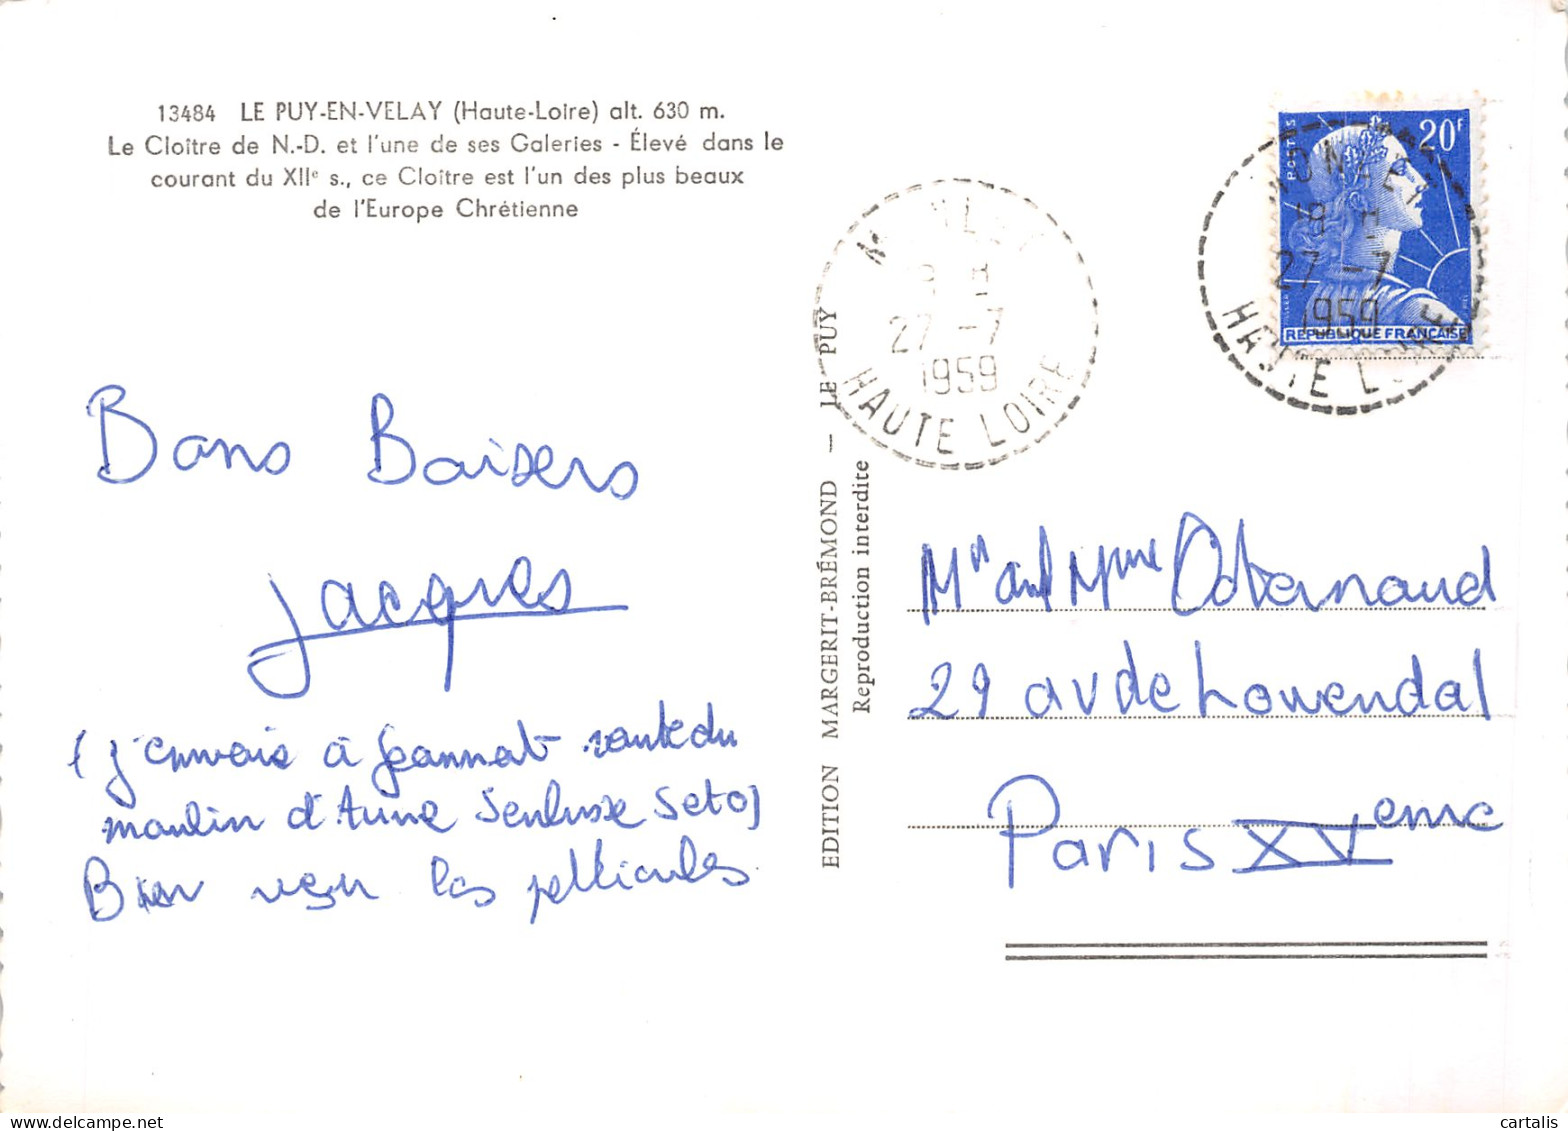 13484 LE PUY-EN-VELAY (Haute-Loire) alt. 630 m.
Le Cloître de N.-D. et l'une de ses Galeries - Élevé dans le
courant du XIIe s., ce Cloître est l'un des plus beaux
de l'Europe Chrétienne
Bons Baisers
Jacques
(j'envoie à Jeannot route du
moulin d'Aune Setos)
Bien reçu les pellicules.
EDITION MARGERIT-BRÉMOND — LE PUY
Reproduction interdite
27 -7
1959
HAUTE LOIRE
POSTES
20F
27 -7
1959
REPUBLIQUE FRANÇAISE
HAUTE LOIRE
Mr and Mme Obernaud
29 av de Lowendal
Paris XVeme
cartalis